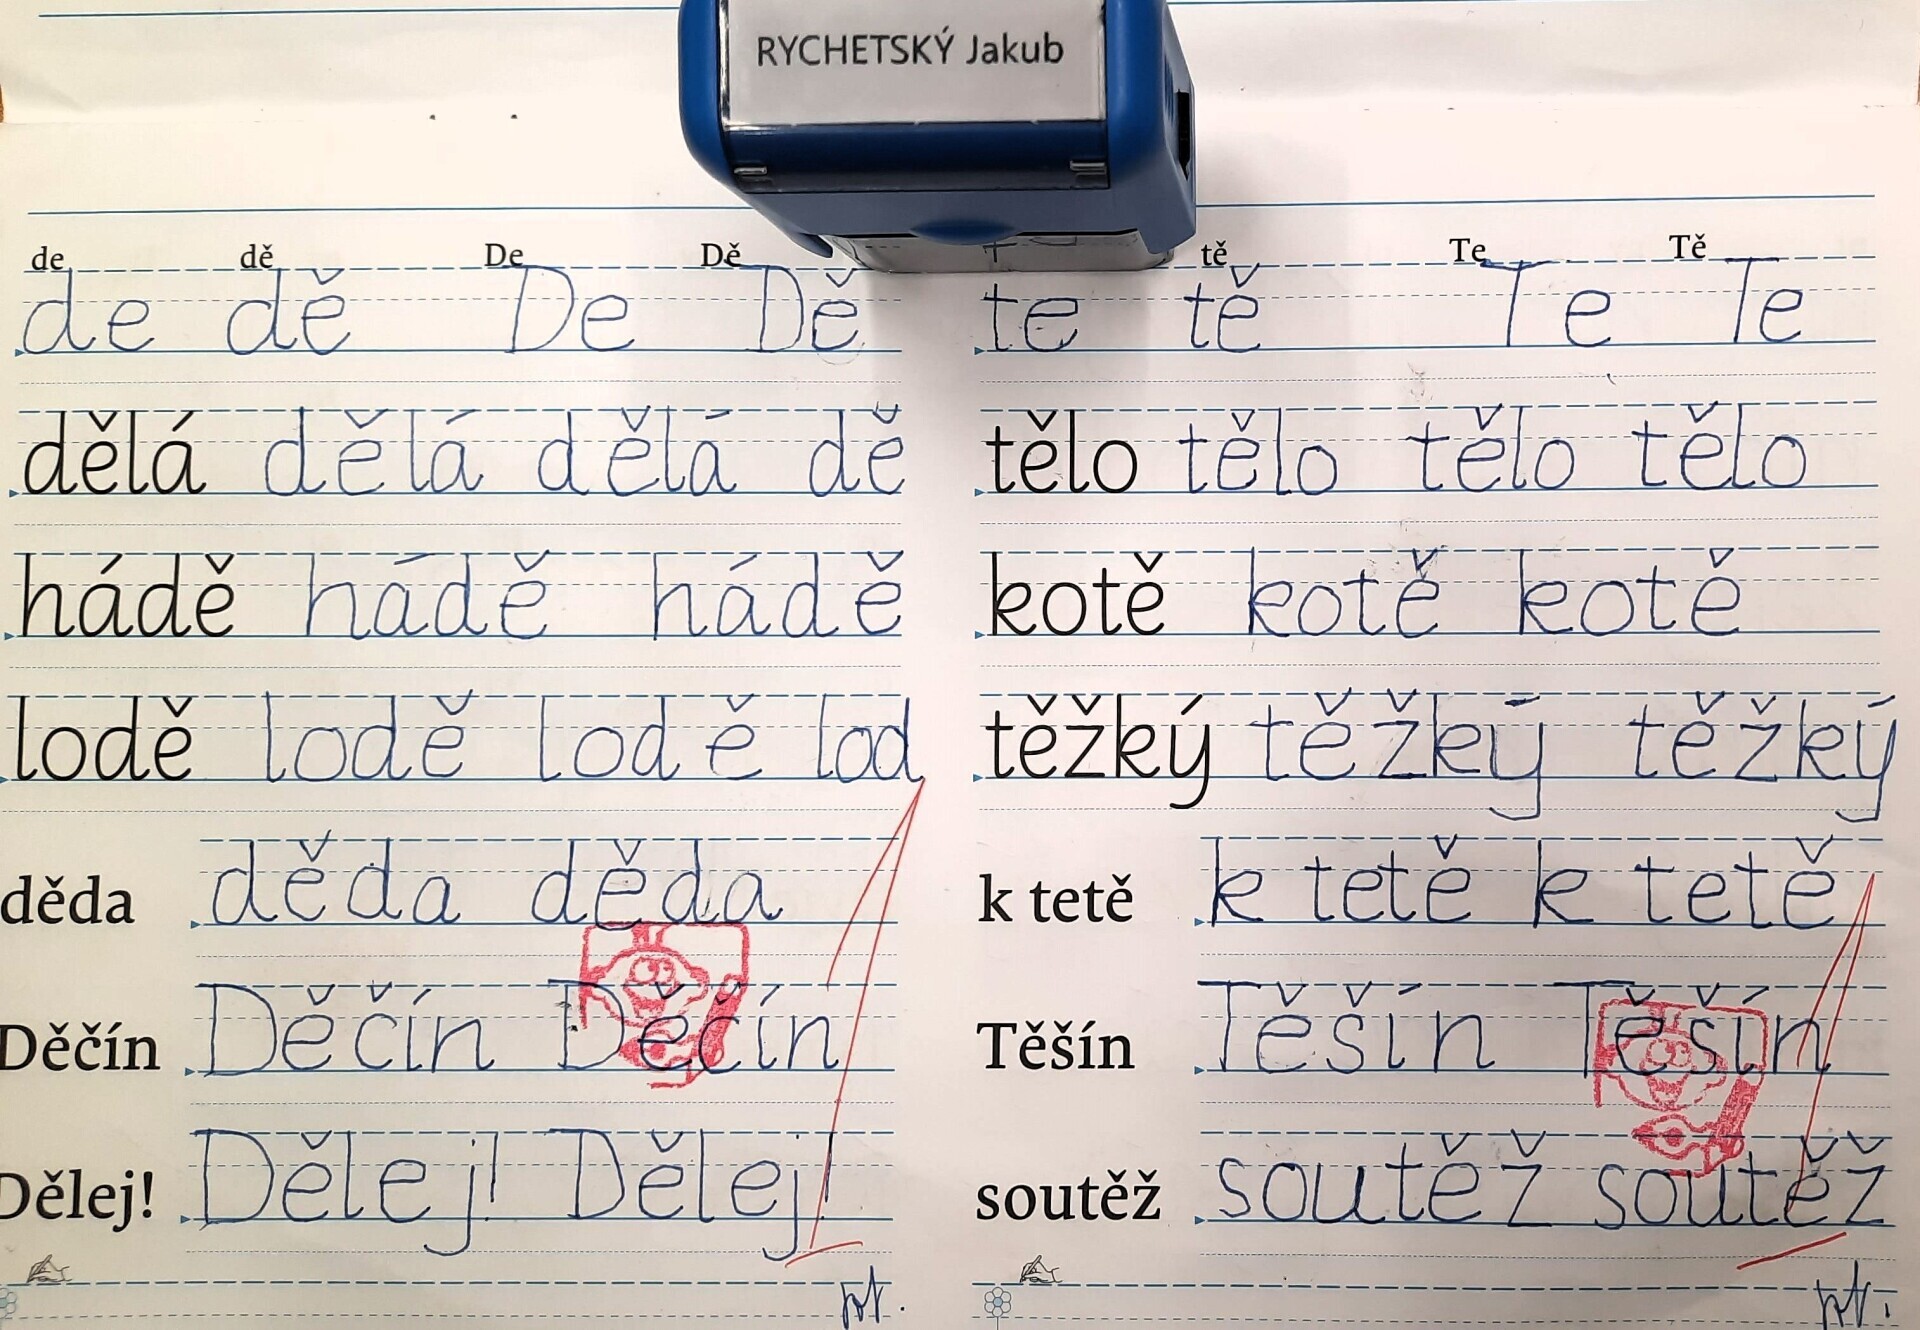 RYCHETSKÝ Jakub
de dě De Dě
de dě De Dě
dělá dělá dělá dě
hádě hádě hádě
lodě lodě lodě lod
děda děda děda
Děčín Děčín Děčín
Dělej! Dělej! Dělej!
tě Te Tě
te tě Te Te
tělo tělo tělo tělo
kotě kotě kotě
těžký těžký těžký
k tetě k tetě k tetě
Těšín Těšín Těšín
soutěž soutěž soutěž